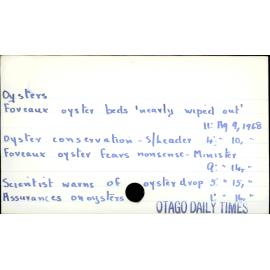 Oysters
Foveaux oyster beds 'nearly wiped out'
11: Ag 9, 1968
Oyster conservation - S/header 4: " 10, "
Foveaux oyster fears nonsense - Minister
9: " 14, "
Scientist warns of oyster drop 3: " 15, "
Assurances on oysters 1: " 16, "
OTAGO DAILY TIMES